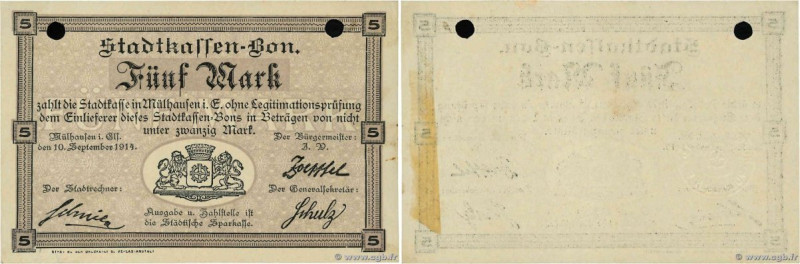 5 5
Stadtkassen-Bon.
Fünf Mark
zahlt die Stadtkasse in Mülhausen i. E. ohne Legitimationsprüfung
dem Einlieferer dieses Stadtkassen-Bons in Beträgen von nicht
unter zwanzig Mark.
Mülhausen i. Els.
den 10. September 1914.
Der Bürgermeister:
I. V.
Der Stadtrechner:
Der Generalsekretär:
Schulz
Ausgabe u. Zahlstelle ist
die Städtische Sparkasse.
5 5
5 5
Stadtkassen-Bon.
Fünf Mark
5 5
www.cgb.fr
www.cgb.fr